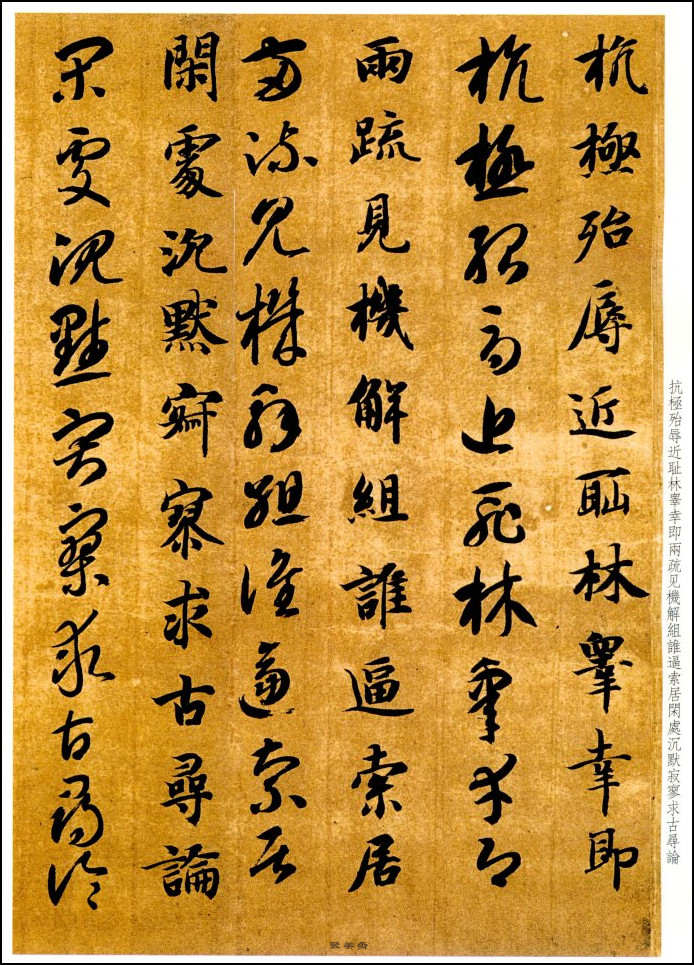 抗極殆辱近耻林睾幸即兩疏见機解組誰逼索居閑處沉默寂寥求古尋論
抗極殆辱近耻林睾幸即
抗極殆辱近耻林睾幸即
兩疏見機解組誰逼索居
兩疏見機解組誰逼索居
閑處沉默寂寥求古尋論
閑處沉默寂寥求古尋論